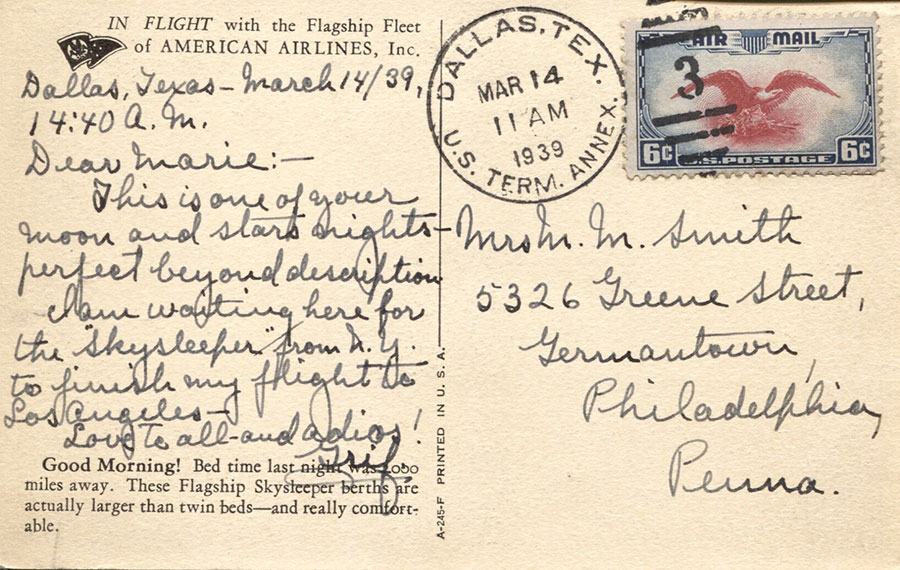 IN FLIGHT with the Flagship Fleet
of AMERICAN AIRLINES, Inc.
Dallas, Texas - March 14/39,
14:40 A. M.
Dear Marie:-
This is one of your
moon and stars nights -
perfect beyond description
I am waiting here for
the "Skysleeper" from N. Y.
to finish my flight to
Los Angeles -
Love to all - and adios!
Grif.
Good Morning! Bed time last night was 2000
miles away. These Flagship Skysleeper berths are
actually larger than twin beds—and really comfort-
able.
A-245-F PRINTED IN U. S. A.
DALLAS, TEX.
MAR 14
11 AM
1939
U.S. TERM. ANNEX.
AIR MAIL
3
6c U.S. POSTAGE 6c
Mrs M. M. Smith
5326 Greene Street,
Germantown,
Philadelphia,
Penna.